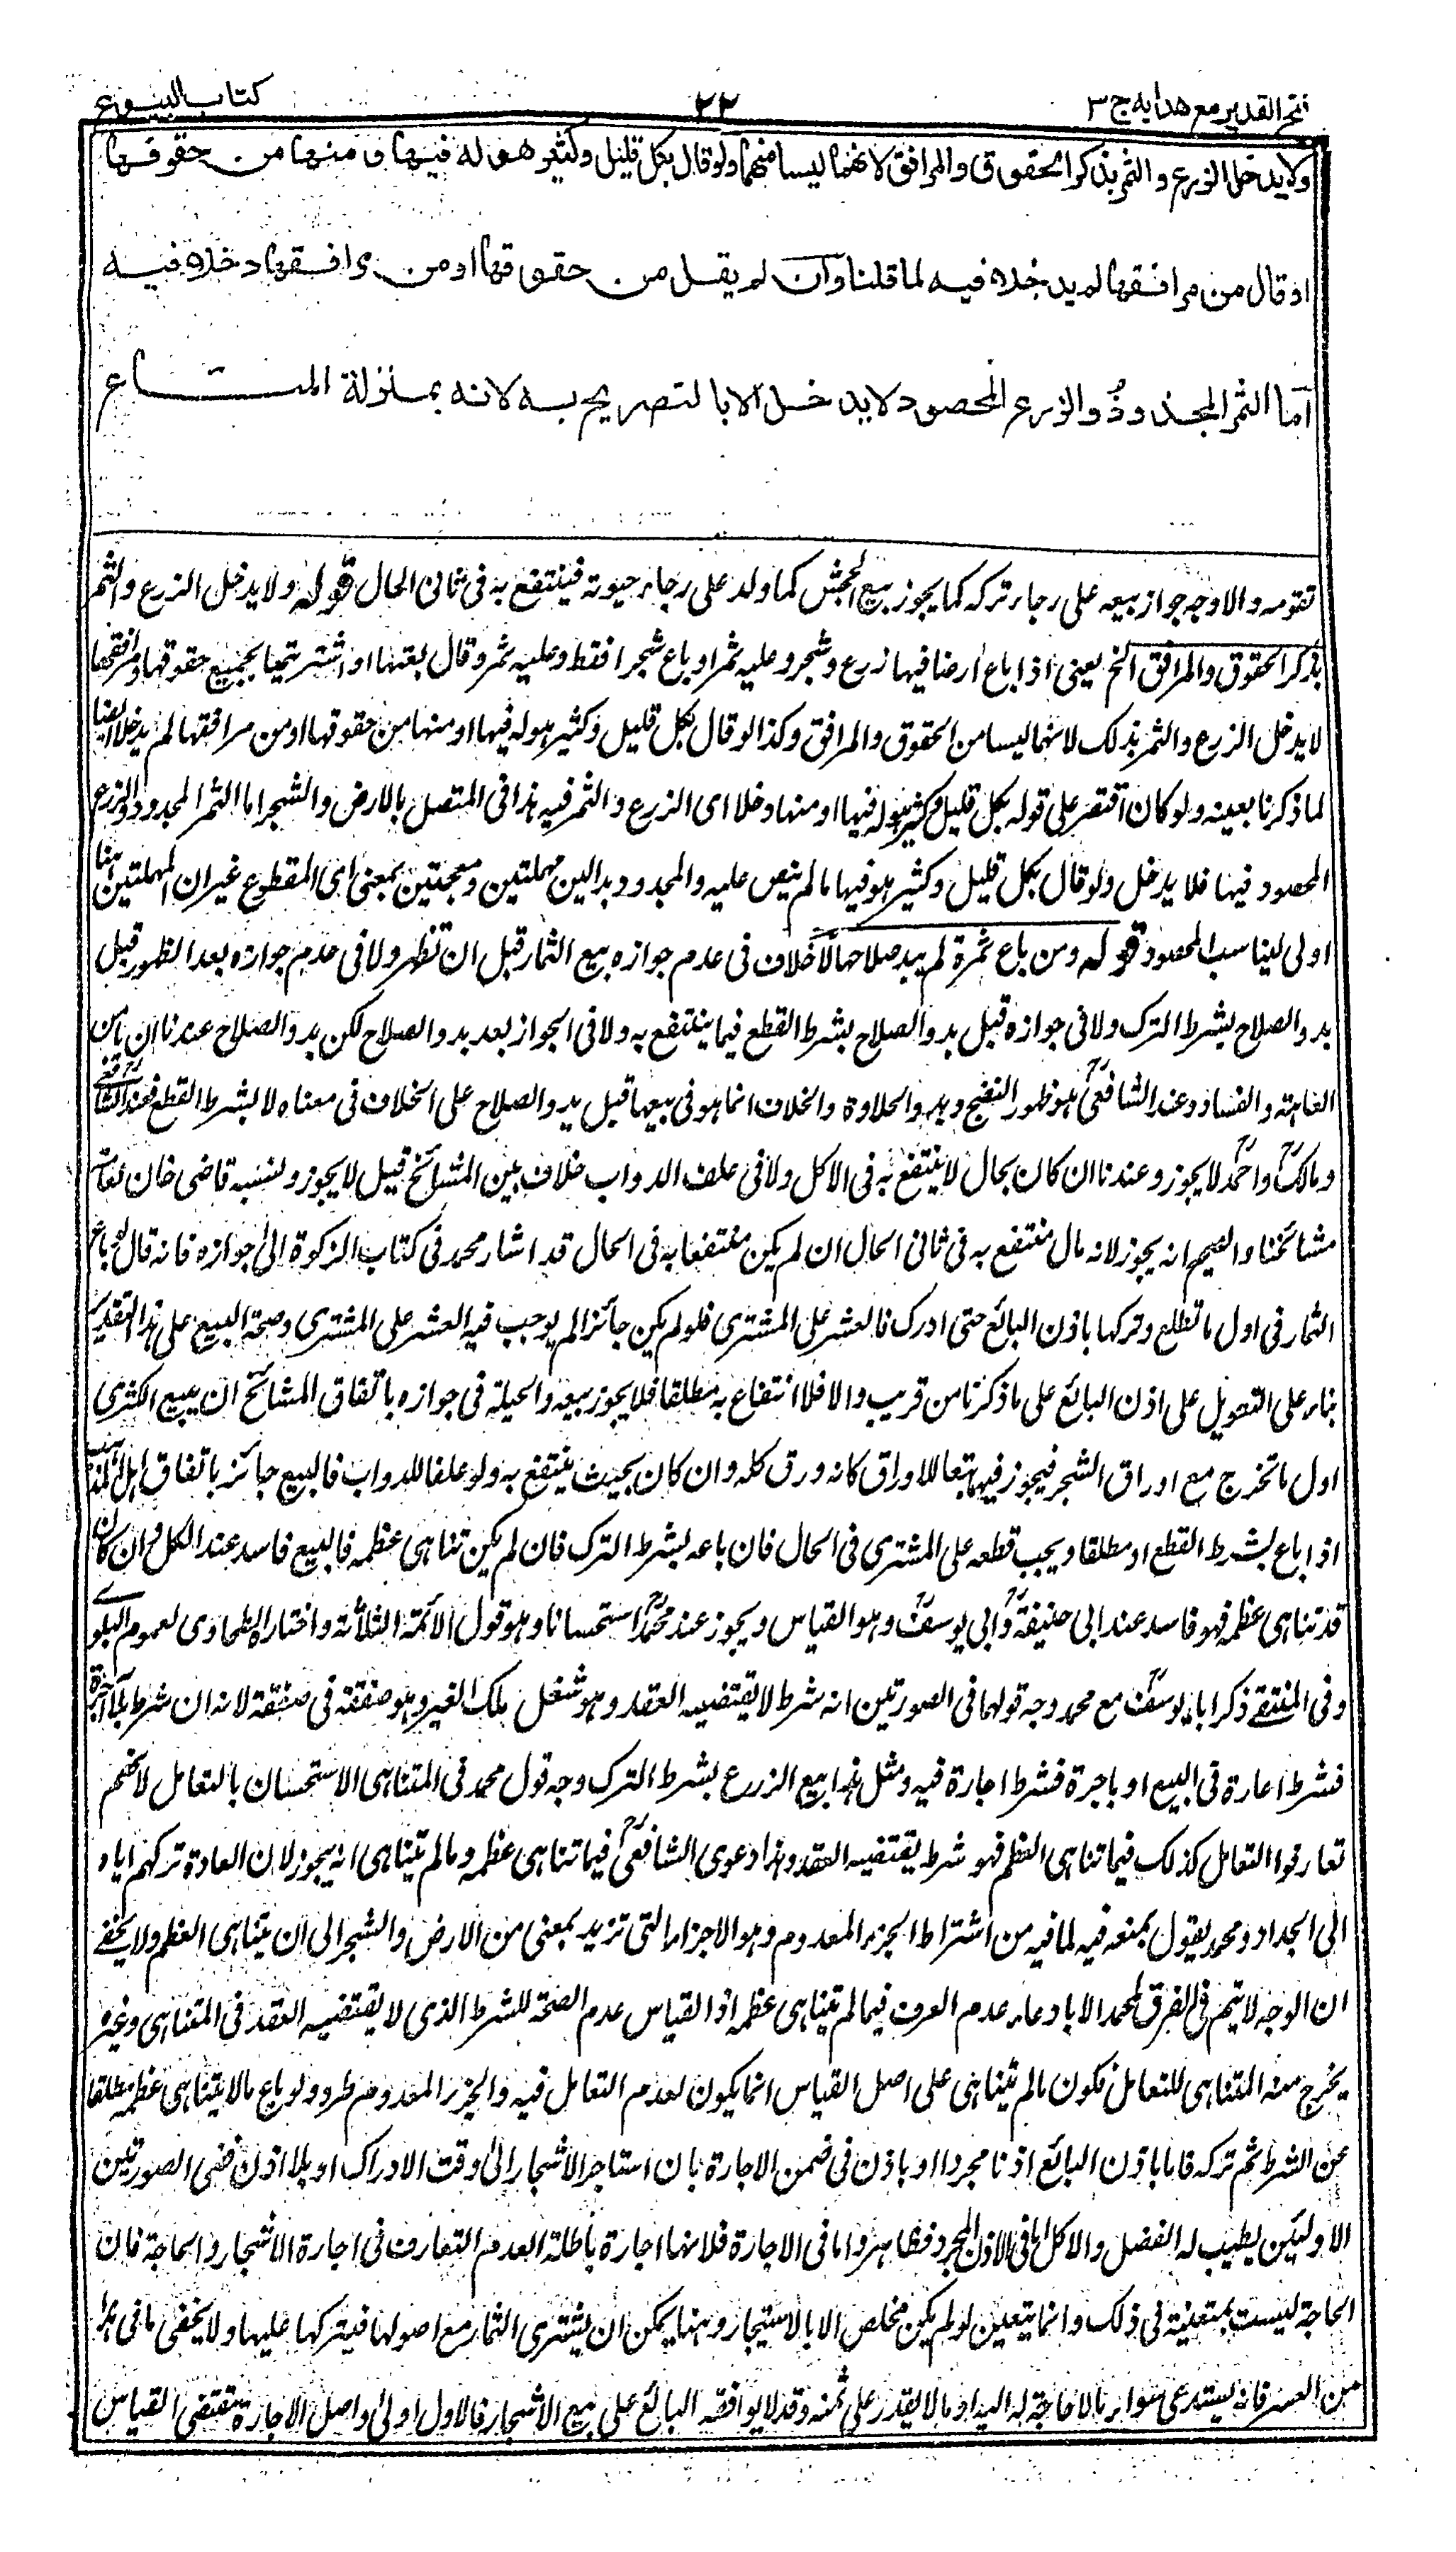 فتح القدير مع هدايه ج ٣
٢٢
كتاب البيوع
ولا يدخل الزرع والثمر بذكر الحقوق والمرافق لانهما ليسا منهما ولو قال بكل قليل وكثير هو له فيها ومنها من حقوقها
او قال من مرافقها لم يدخلاه فيه لما قلنا وان لم يقل من حقوقها او من مرافقها دخلاه فيه
اما الثمر المجذوذ والزرع المحصود لا يدخل الا بالتصريح به لانه بمنزلة المتاع
تقومه والاوجه جواز بيعه على رجاء تركه كما يجوز بيع الجحش كما ولد على رجاء حيوته فينتفع به فى ثانى الحال قوله ولا يدخل الزرع والثمر
بذكر الحقوق والمرافق الخ يعنى اذا باع ارضا فيها زرع وشجر وعليه ثمر او باع شجرا فقط وعليه ثمر وقال بعتها او اشتريتها بجميع حقوقها ومرافقها
لا يدخل الزرع والثمر بذلك لانهما ليسا من الحقوق والمرافق وكذا لو قال بكل قليل وكثير هو له فيها او منها من حقوقها او من مرافقها لم يدخلا ايضا
لما ذكرنا بعينه ولو كان اقتصر على قوله بكل قليل وكثير هو له فيها او منها دخلا اى الزرع والثمر فيه هذا فى المتصل بالارض والشجر اما الثمر المجدود والزرع
المحصود فيها فلا يدخل ولو قال بكل قليل وكثير هو فيها ما لم ينص عليه والمجدود بدالين مهملتين ومعجمتين بمعنى اى المقطوع غير ان المهملتين هنا
اولى ليناسب المحصود قوله ومن باع ثمرة لم يبد صلاحها لا خلاف فى عدم جوازه بيع الثمار قبل ان تظهر ولا فى عدم جوازه بعد الظهور قبل
بدو الصلاح بشرط الترك ولا فى جوازه قبل بدو الصلاح بشرط القطع فيما ينتفع به ولا فى الجواز بعد بدو الصلاح لكن بدو الصلاح عندنا ان يامن
العاهة والفساد وعند الشافعى هو ظهور النضج وبدو الحلاوة والخلاف انما هو فى بيعها قبل بدو الصلاح على الخلاف فى معناه لا بشرط القطع فعند الشافعى
ومالك واحمد لا يجوز وعندنا ان كان بحال لا ينتفع به فى الاكل ولا فى علف الدواب خلاف بين المشائخ قيل لا يجوز ونسبه قاضى خان لعامة
مشائخنا والصحيح انه يجوز لانه مال منتفع به فى ثانى الحال ان لم يكن منتفعا به فى الحال قد اشار محمد فى كتاب الزكوة الى جوازه فانه قال لو باع
الثمار فى اول ما تطلع وتركها باذن البائع حتى ادرك فالعشر على المشترى فلو لم يكن جائزا لم يوجب فيه العشر على المشترى وصحة البيع على هذا التقدير
بناء على التعويل على اذن البائع على ما ذكرنا من قريب والا فلا انتفاع به مطلقا فلا يجوز بيعه والحيلة فى جوازه باتفاق المشائخ ان يبيع الكثرى
اول ما تخرج مع اوراق الشجر فيجوز فيها تبعا للاوراق كانه ورق كله وان كان بحيث ينتفع به ولو علفا للدواب فالبيع جائز باتفاق اهل المذهب
اذا باع بشرط القطع او مطلقا ويجب قطعه على المشترى فى الحال فان باعه بشرط الترك فان لم يكن تناهى عظمه فالبيع فاسد عند الكل وان كان
قد تناهى عظمه فهو فاسد عند ابى حنيفة وابى يوسف وهو القياس ويجوز عند محمد استحسانا وهو قول الائمة الثلاثة واختاره الطحاوى لعموم البلوے
وفى المنتقے ذكر ابا يوسف مع محمد وجه قولهما فى الصورتين انه شرط لا يقتضيه العقد وهو شغل ملك الغير وهو صفقة فى صفقة لانه ان شرط بلا اجرة
فشرط اعارة فى البيع او باجرة فشرط اجارة فيه ومثل هذا بيع الزرع بشرط الترك وجه قول محمد فى المتناهى الاستحسان بالتعامل لانهم
تعارفوا التعامل كذلك فيما تناهى العظم فهو شرط يقتضيه العقد وهذا دعوى الشافعى فيما تناهى عظمه وما لم يتناهى انه يجوز لان العادة تركهم اياه
الى الجداد ومحمد يقول بمنعه فيه لما فيه من اشتراط الجزء المعدوم وهو الاجزاء التى تزيد بمعنى من الارض والشجر الى ان يتناهى العظم ولا يخفے
ان الوجه لا يتم فى الفرق لمحمد الا بادعاء عدم العرف فيما لم يتناهى عظمه اذ القياس عدم الصحة للشرط الذى لا يقتضيه العقد فى المتناهى وغيره
يخرج منه المتناهى للتعامل فكون ما لم يتناهى على اصل القياس انما يكون لعدم التعامل فيه والجزء المعدوم طرد ولو باع ما لا يتناهى عظمه مطلقا
عن الشرط ثم تركه فاما باذن البائع اذنا مجردا او باذن فى ضمن الاجارة بان استاجر الاشجار الى وقت الادراك او بلا اذن ففى الصورتين
الاوليين يطيب له الفضل والاكل اما فى الاذن المجرد فظاهر واما فى الاجارة فلانها اجارة باطلة لعدم التعارف فى اجارة الاشجار والحاجة فان
الحاجة ليست بمتعينة فى ذلك وانما يتعين لو لم يكن مخلص الا بالاستيجار وهنا يمكن ان يشترى الثمار مع اصولها فيتركها عليها ولا يخفى ما فى هذا
من العسر فانه يستدعى شراء ما لا حاجة له اليه او ما لا يقدر على ثمنه وقد لا يوافقه البائع على بيع الاشجار فالاول اولى واصل الاجارة مقتضى القياس